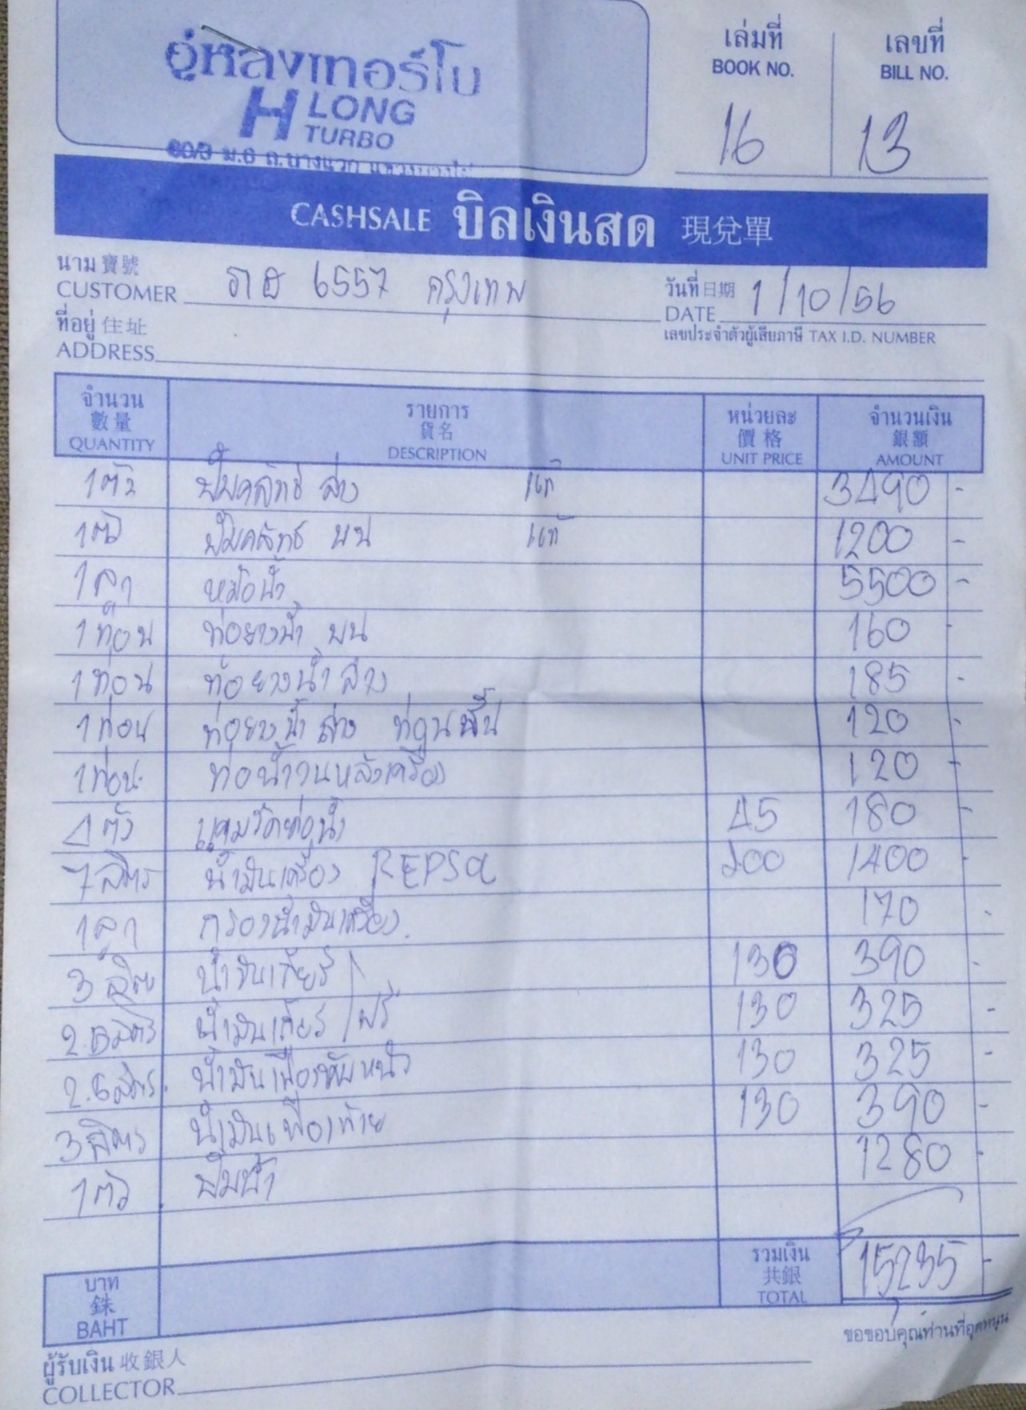 อู่หลงเทอร์โบ
H LONG
TURBO
60/3 ม.6 ถ.บางแวก
เล่มที่
BOOK NO.
16
เลขที่
BILL NO.
13
CASHSALE บิลเงินสด 現兌單
นาม 寶號
CUSTOMER 6557 กรุงเทพ
วันที่ 日期
DATE 1/10/56
ที่อยู่ 住址
ADDRESS
เลขประจำตัวผู้เสียภาษี TAX I.D. NUMBER
จำนวน รายการ หน่วยละ จำนวนเงิน
數量 貨名 價格 銀額
QUANTITY DESCRIPTION UNIT PRICE AMOUNT
1 ตัว ปั๊มคลัทช์ ล่าง แท้ 3490 -
1 ตัว ปั๊มคลัทช์ บน แท้ 1200 -
1 ลูก หม้อน้ำ 5500 -
1 ท่อน ท่อยางน้ำ บน 160 -
1 ท่อน ท่อยางน้ำ ล่าง 185 -
1 ท่อน ท่อยางน้ำ ล่าง 120 -
1 ท่อน ท่อน้ำวนหลังเครื่อง 120 -
4 ตัว แคมรัดท่อน้ำ 45 180 -
7 ลิตร น้ำมันเครื่อง REPSOL 200 1400 -
1 ลูก กรองน้ำมันเครื่อง 170 -
3 ลิตร น้ำมันเกียร์ 130 390 -
2.5 ลิตร น้ำมันเกียร์ / ฟรี 130 325 -
2.5 ลิตร น้ำมันเฟืองหน้า 130 325 -
3 ลิตร น้ำมันเฟืองท้าย 130 390 -
1 ตัว ปั๊มน้ำ 1280 -
บาท
銖
BAHT
รวมเงิน
共銀
TOTAL
15235 -
ผู้รับเงิน 收銀人
COLLECTOR
ขอขอบคุณท่านที่อุดหนุน